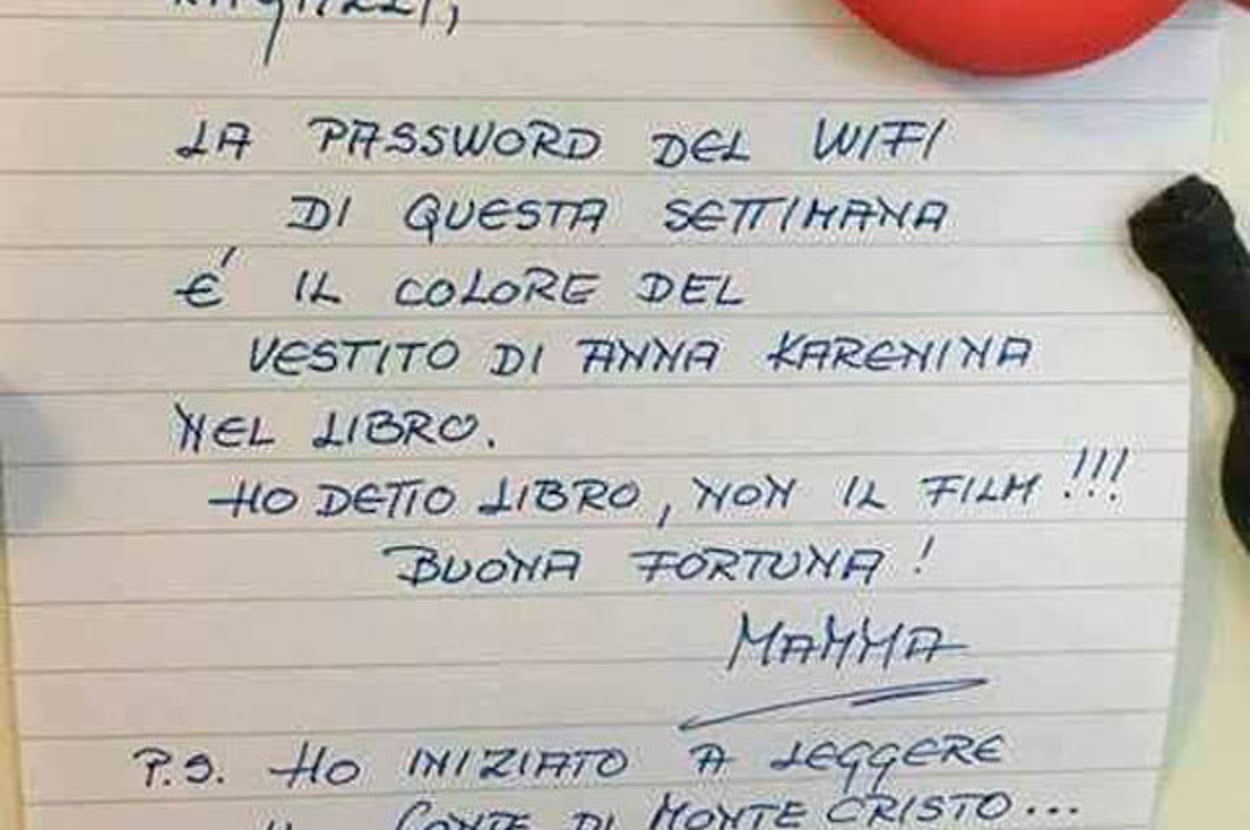 RAGAZZI,
LA PASSWORD DEL WIFI
DI QUESTA SETTIMANA
É IL COLORE DEL
VESTITO DI ANNA KARENINA
NEL LIBRO.
HO DETTO LIBRO, NON IL FILM !!!
BUONA FORTUNA !
MAMMA
P.S. HO INIZIATO A LEGGERE
IL CONTE DI MONTE CRISTO...